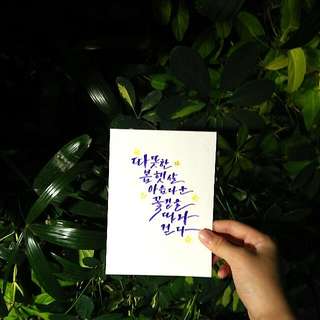 따뜻한
봄햇살
아름다운
꽃길을
따라
걷다